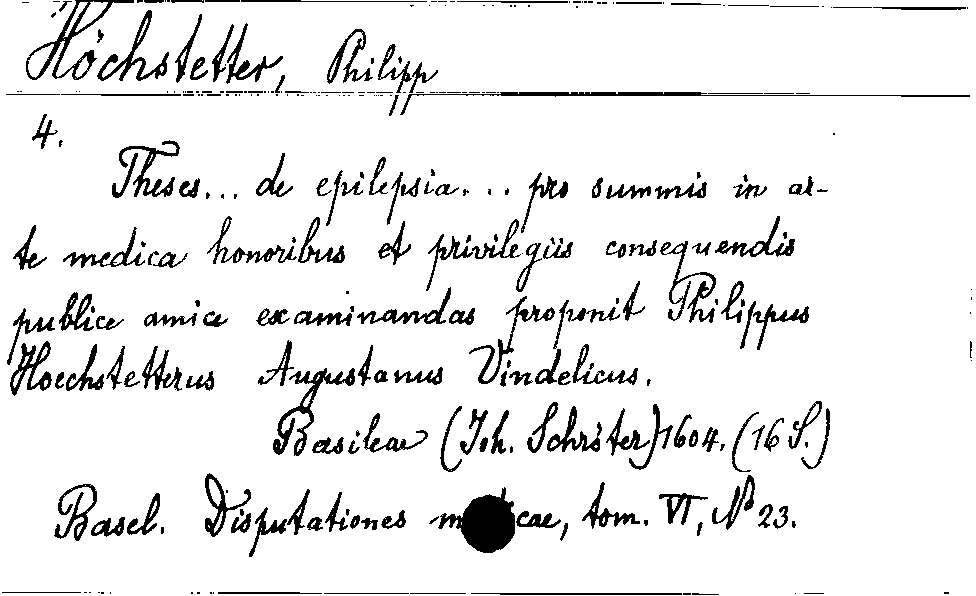 Höchstetter, Philipp
4.
Theses... de epilepsia... pro summis in ar-
te medica honoribus et privilegiis consequendis
publice amice examinandas proponit Philippus
Hoechstetterus Augustanus Vindelicus.
Basileae (Joh. Schröter) 1604. (16 S.)
Basel. Disputationes m cae, tom. VI, No 23.